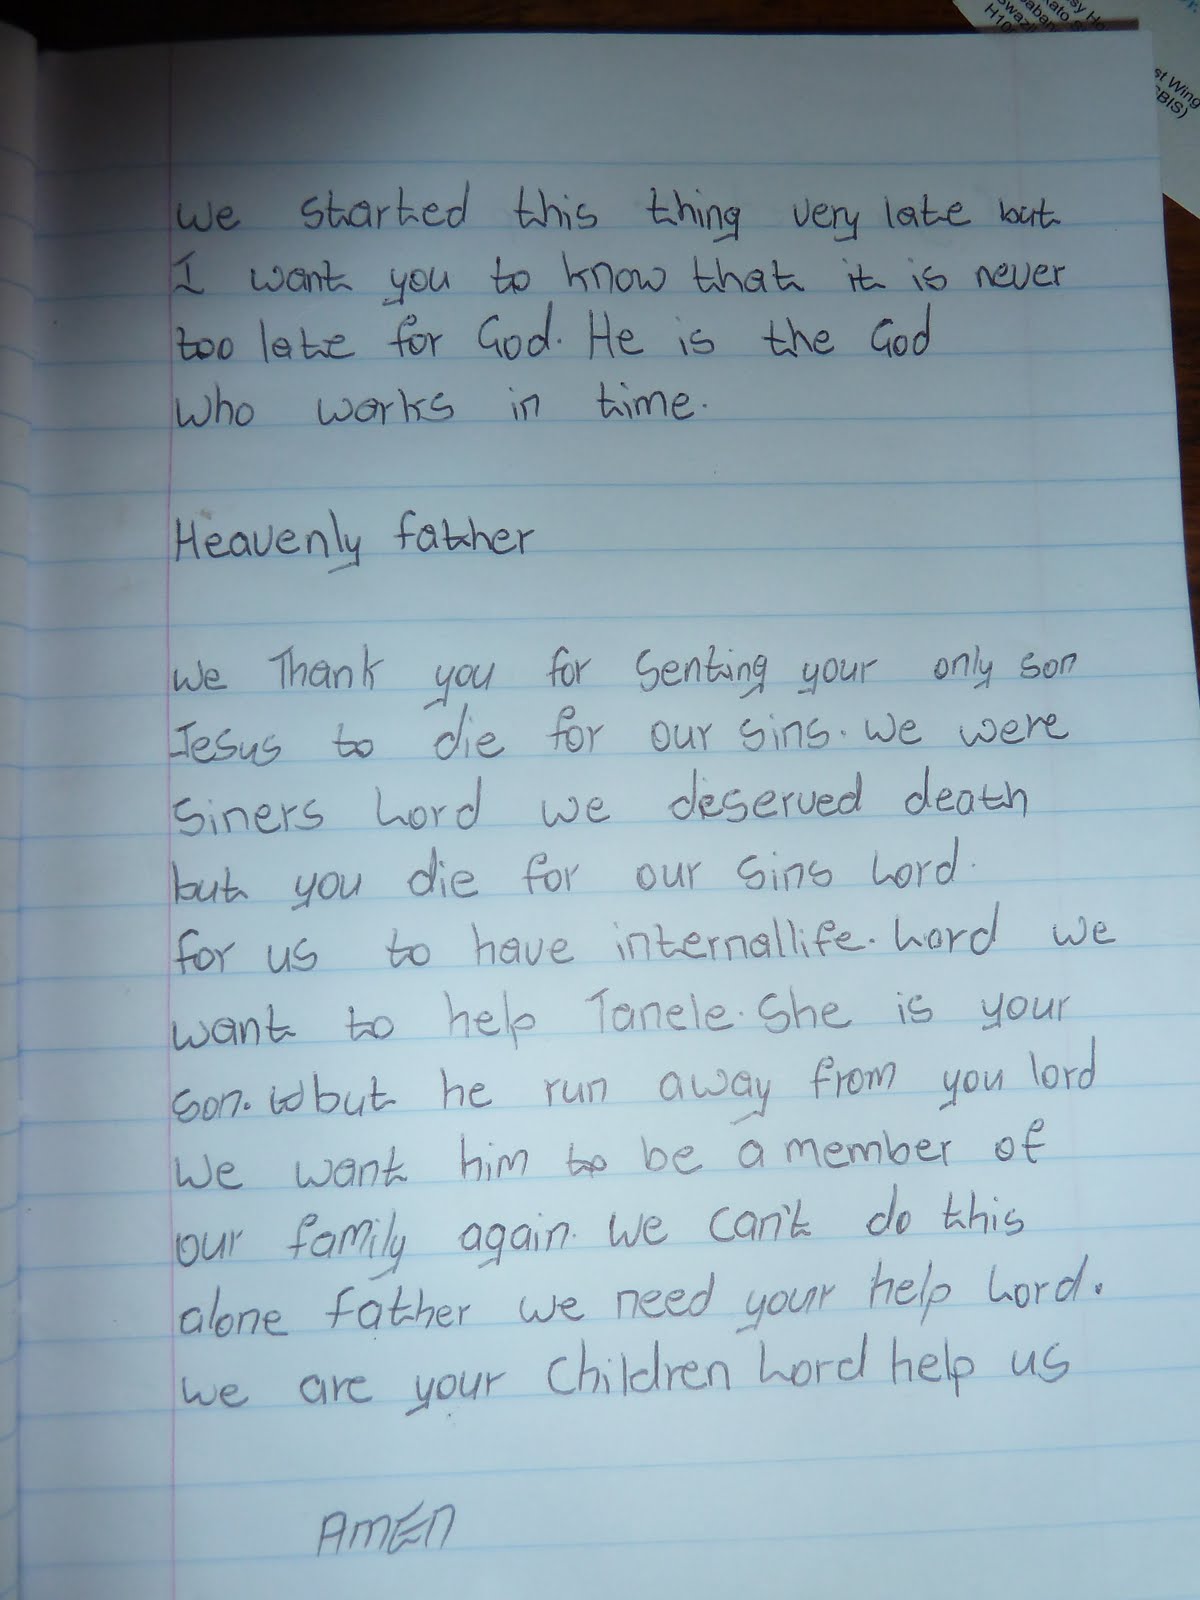 sy Ho
aban
ato S
swazil
H10
st Wing
BIS)
we started this thing very late but
I want you to know that it is never
too late for God. He is the God
who works in time.
Heavenly father
we Thank you for senting your only son
Jesus to die for our sins. we were
siners Lord we deserved death
but you die for our sins Lord.
for us to have internallife. Lord we
want to help Tanele. She is your
son. but he run away from you lord
we want him to be a member of
our family again. we can't do this
alone father we need your help Lord.
we are your children Lord help us
AMEN